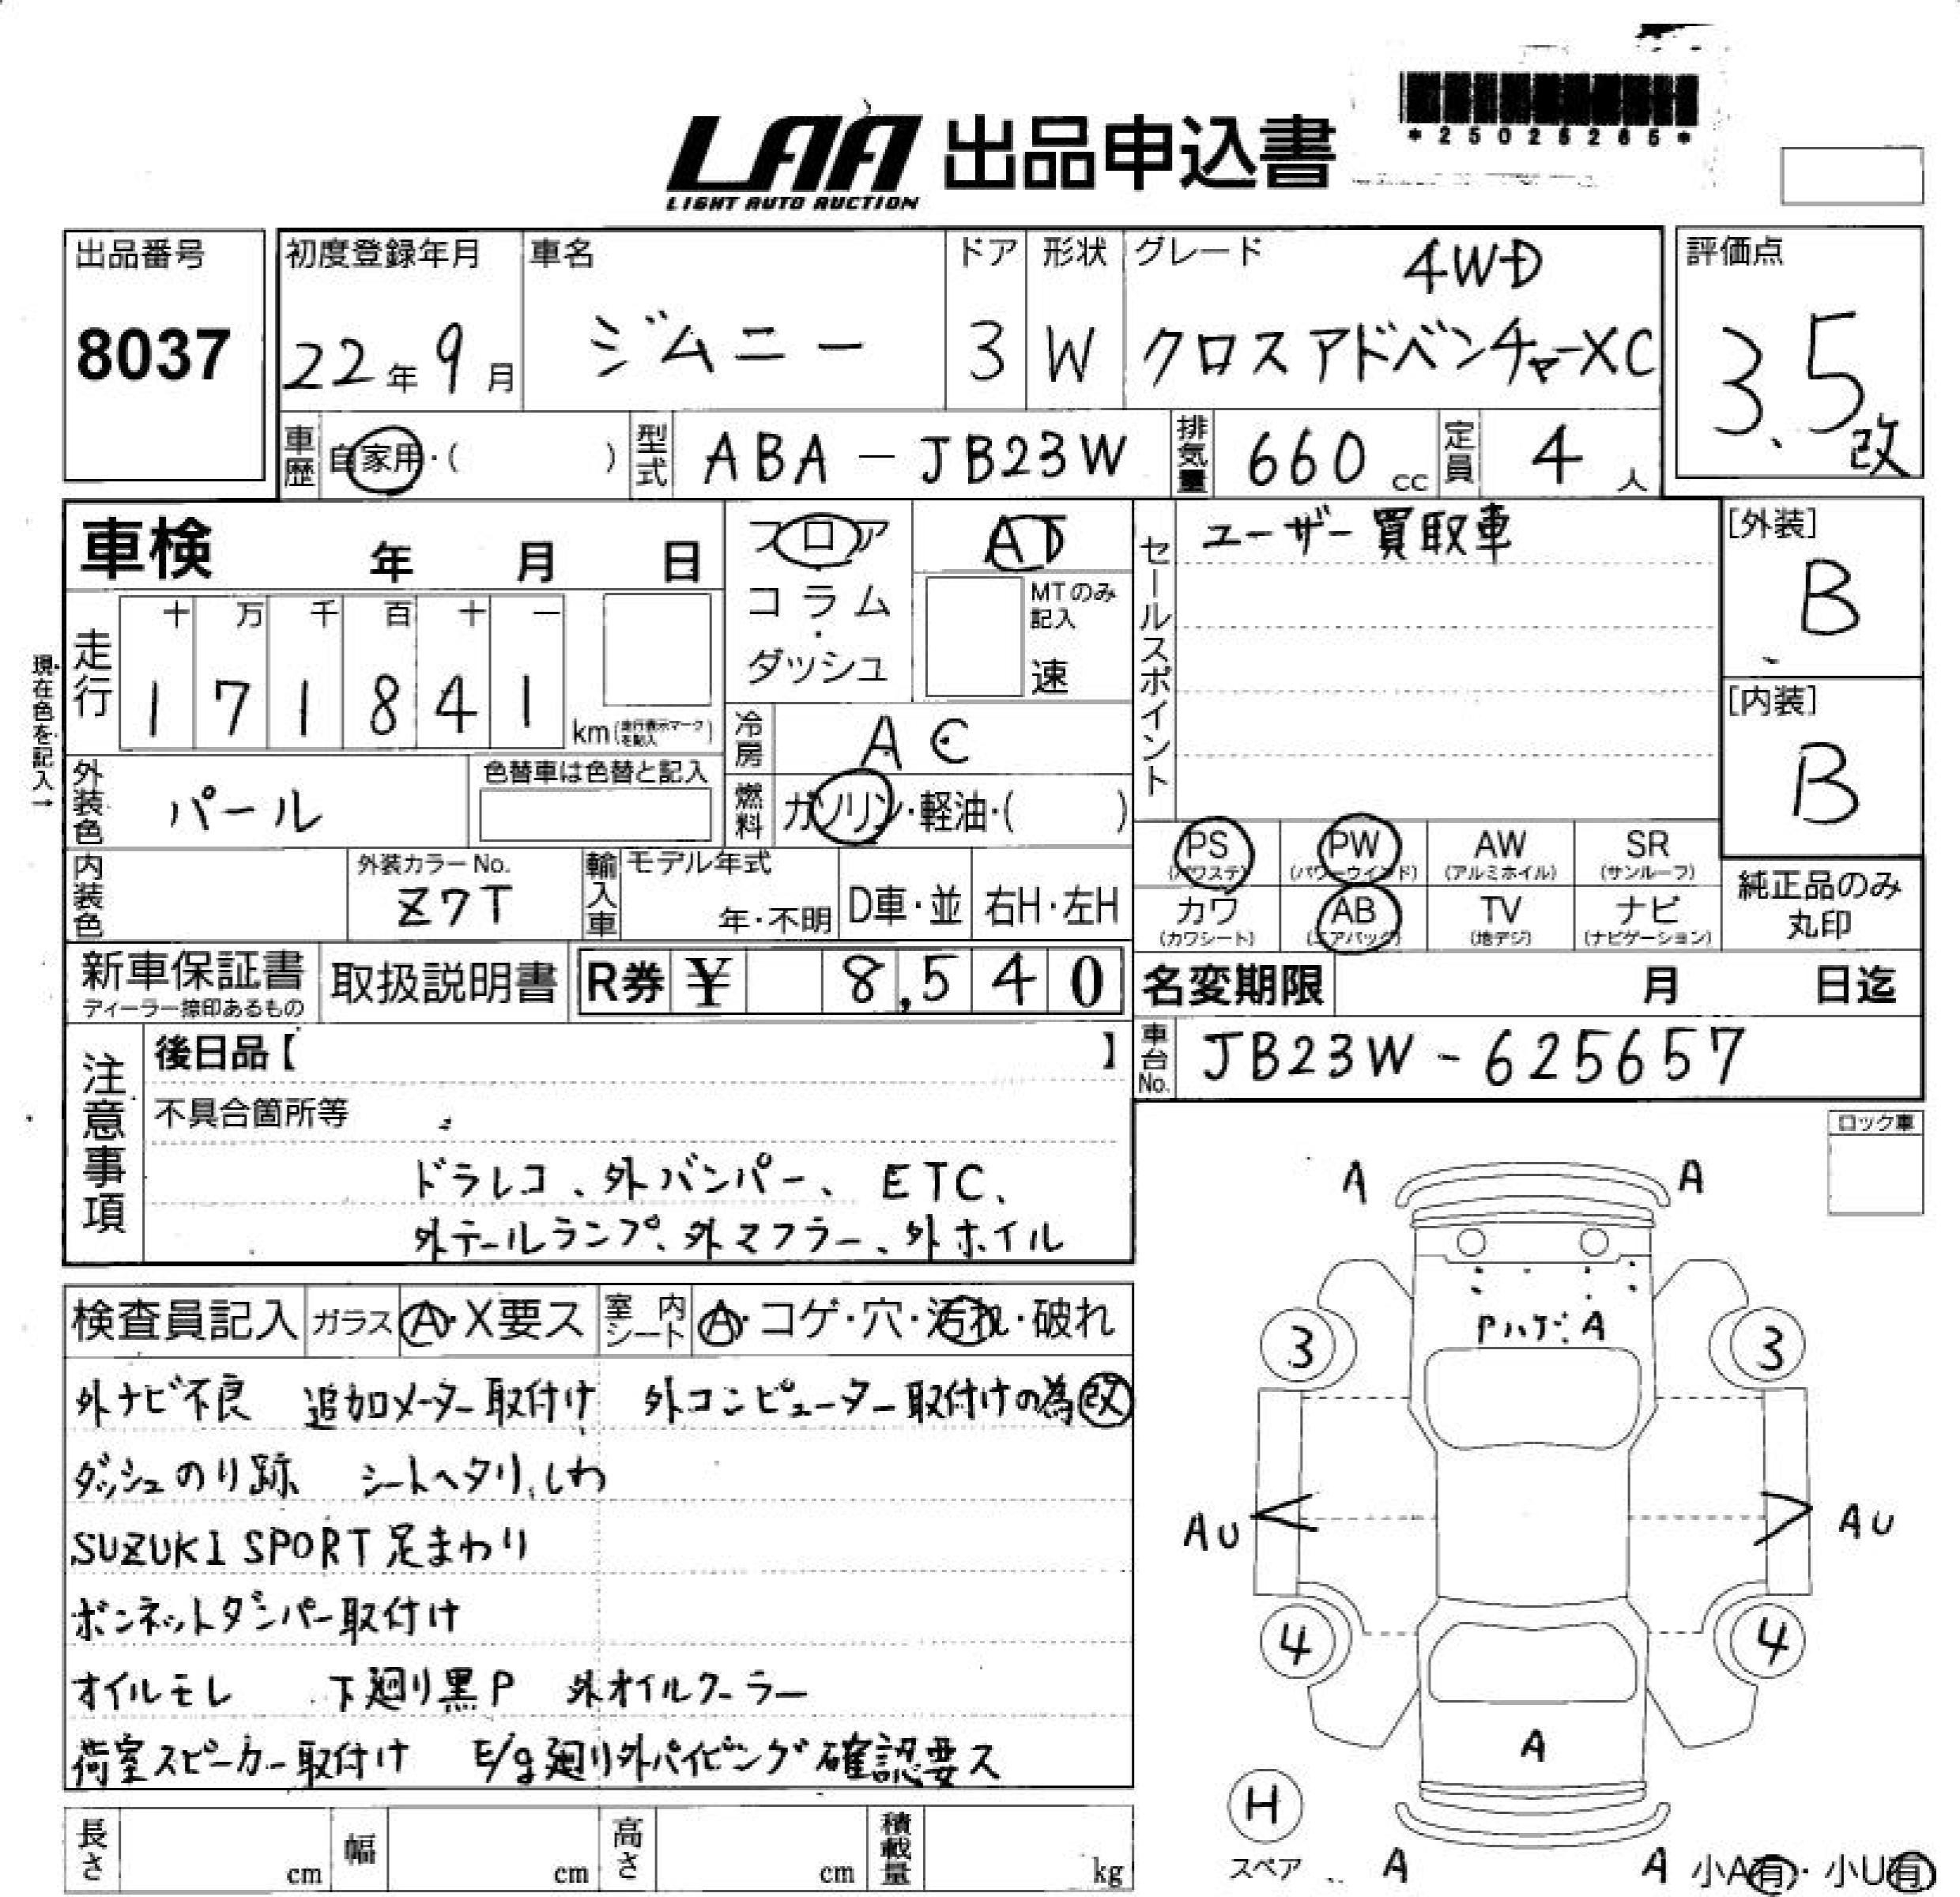 *25026265*
LAA 出品申込書
LIGHT AUTO AUCTION
出品番号
8037
初度登録年月
22年9月
車名
ジムニー
ドア
3
形状
W
グレード
4WD
クロスアドベンチャーXC
評価点
3.5
改
車歴
自家用・( )
型式
ABA-JB23W
排気量
660 cc
定員
4 人
車検 年 月 日
フロア
コラム
・
ダッシュ
AT
MTのみ
記入
速
現在色を記入→
走行
十 万 千 百 十 一
1 7 1 8 4 1
km(走行表示マークを記入)
冷房
AC
燃料
ガソリン・軽油・( )
外装色
パール
色替車は色替と記入
内装色
外装カラーNo.
Z7T
輸入車
モデル年式
年・不明
D車・並
右H・左H
新車保証書
ディーラー捺印あるもの
取扱説明書
R券 ¥ 8,540
セールスポイント
ユーザー買取車
[外装]
B
[内装]
B
PS
(パワステ)
PW
(パワーウインド)
AW
(アルミホイル)
SR
(サンルーフ)
カワ
(カワシート)
AB
(エアバッグ)
TV
(地デジ)
ナビ
(ナビゲーション)
純正品のみ
丸印
名変期限 月 日迄
車台No.
JB23W-625657
注意事項
後日品【 】
不具合箇所等
ドラレコ、外バンパー、ETC、
外テールランプ、外マフラー、外ホイル
検査員記入
ガラス
A・X要ス
室内シート
A・コゲ・穴・汚れ・破れ
外ナビ不良 追加メーター取付け 外コンピューター取付けの為改
ダッシュのり跡 シートヘタリ、しわ
SUZUKI SPORT足まわり
ボンネットダンパー取付け
オイルモレ 下廻り黒P 外オイルクーラー
荷室スピーカー取付け E/g廻り外パイピング確認要ス
長さ cm
幅 cm
高さ cm
積載量 kg
ロック車
A A
Pハゲ、A
3 3
AU AU
4 4
A
H
スペア
A A
小A有・小U有